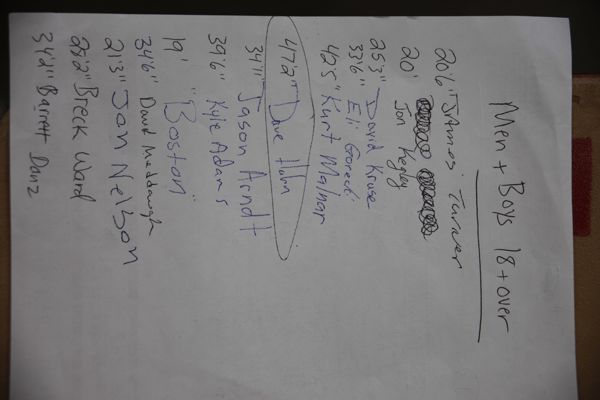 Men + Boys 18 + over
20'6" James Turner
20' Jon Hegley
25'3" David Kruse
33'6" Eli Gorecki
42'5" Kurt Malnar
47'2" Dave Hahn
34'11" Jason Arndt
39'6" Kyle Adams
19' "Boston"
34'6" David Maddaugh
21'3" Jon Nelson
28'2" Breck Ward
34'2" Barrett Danz